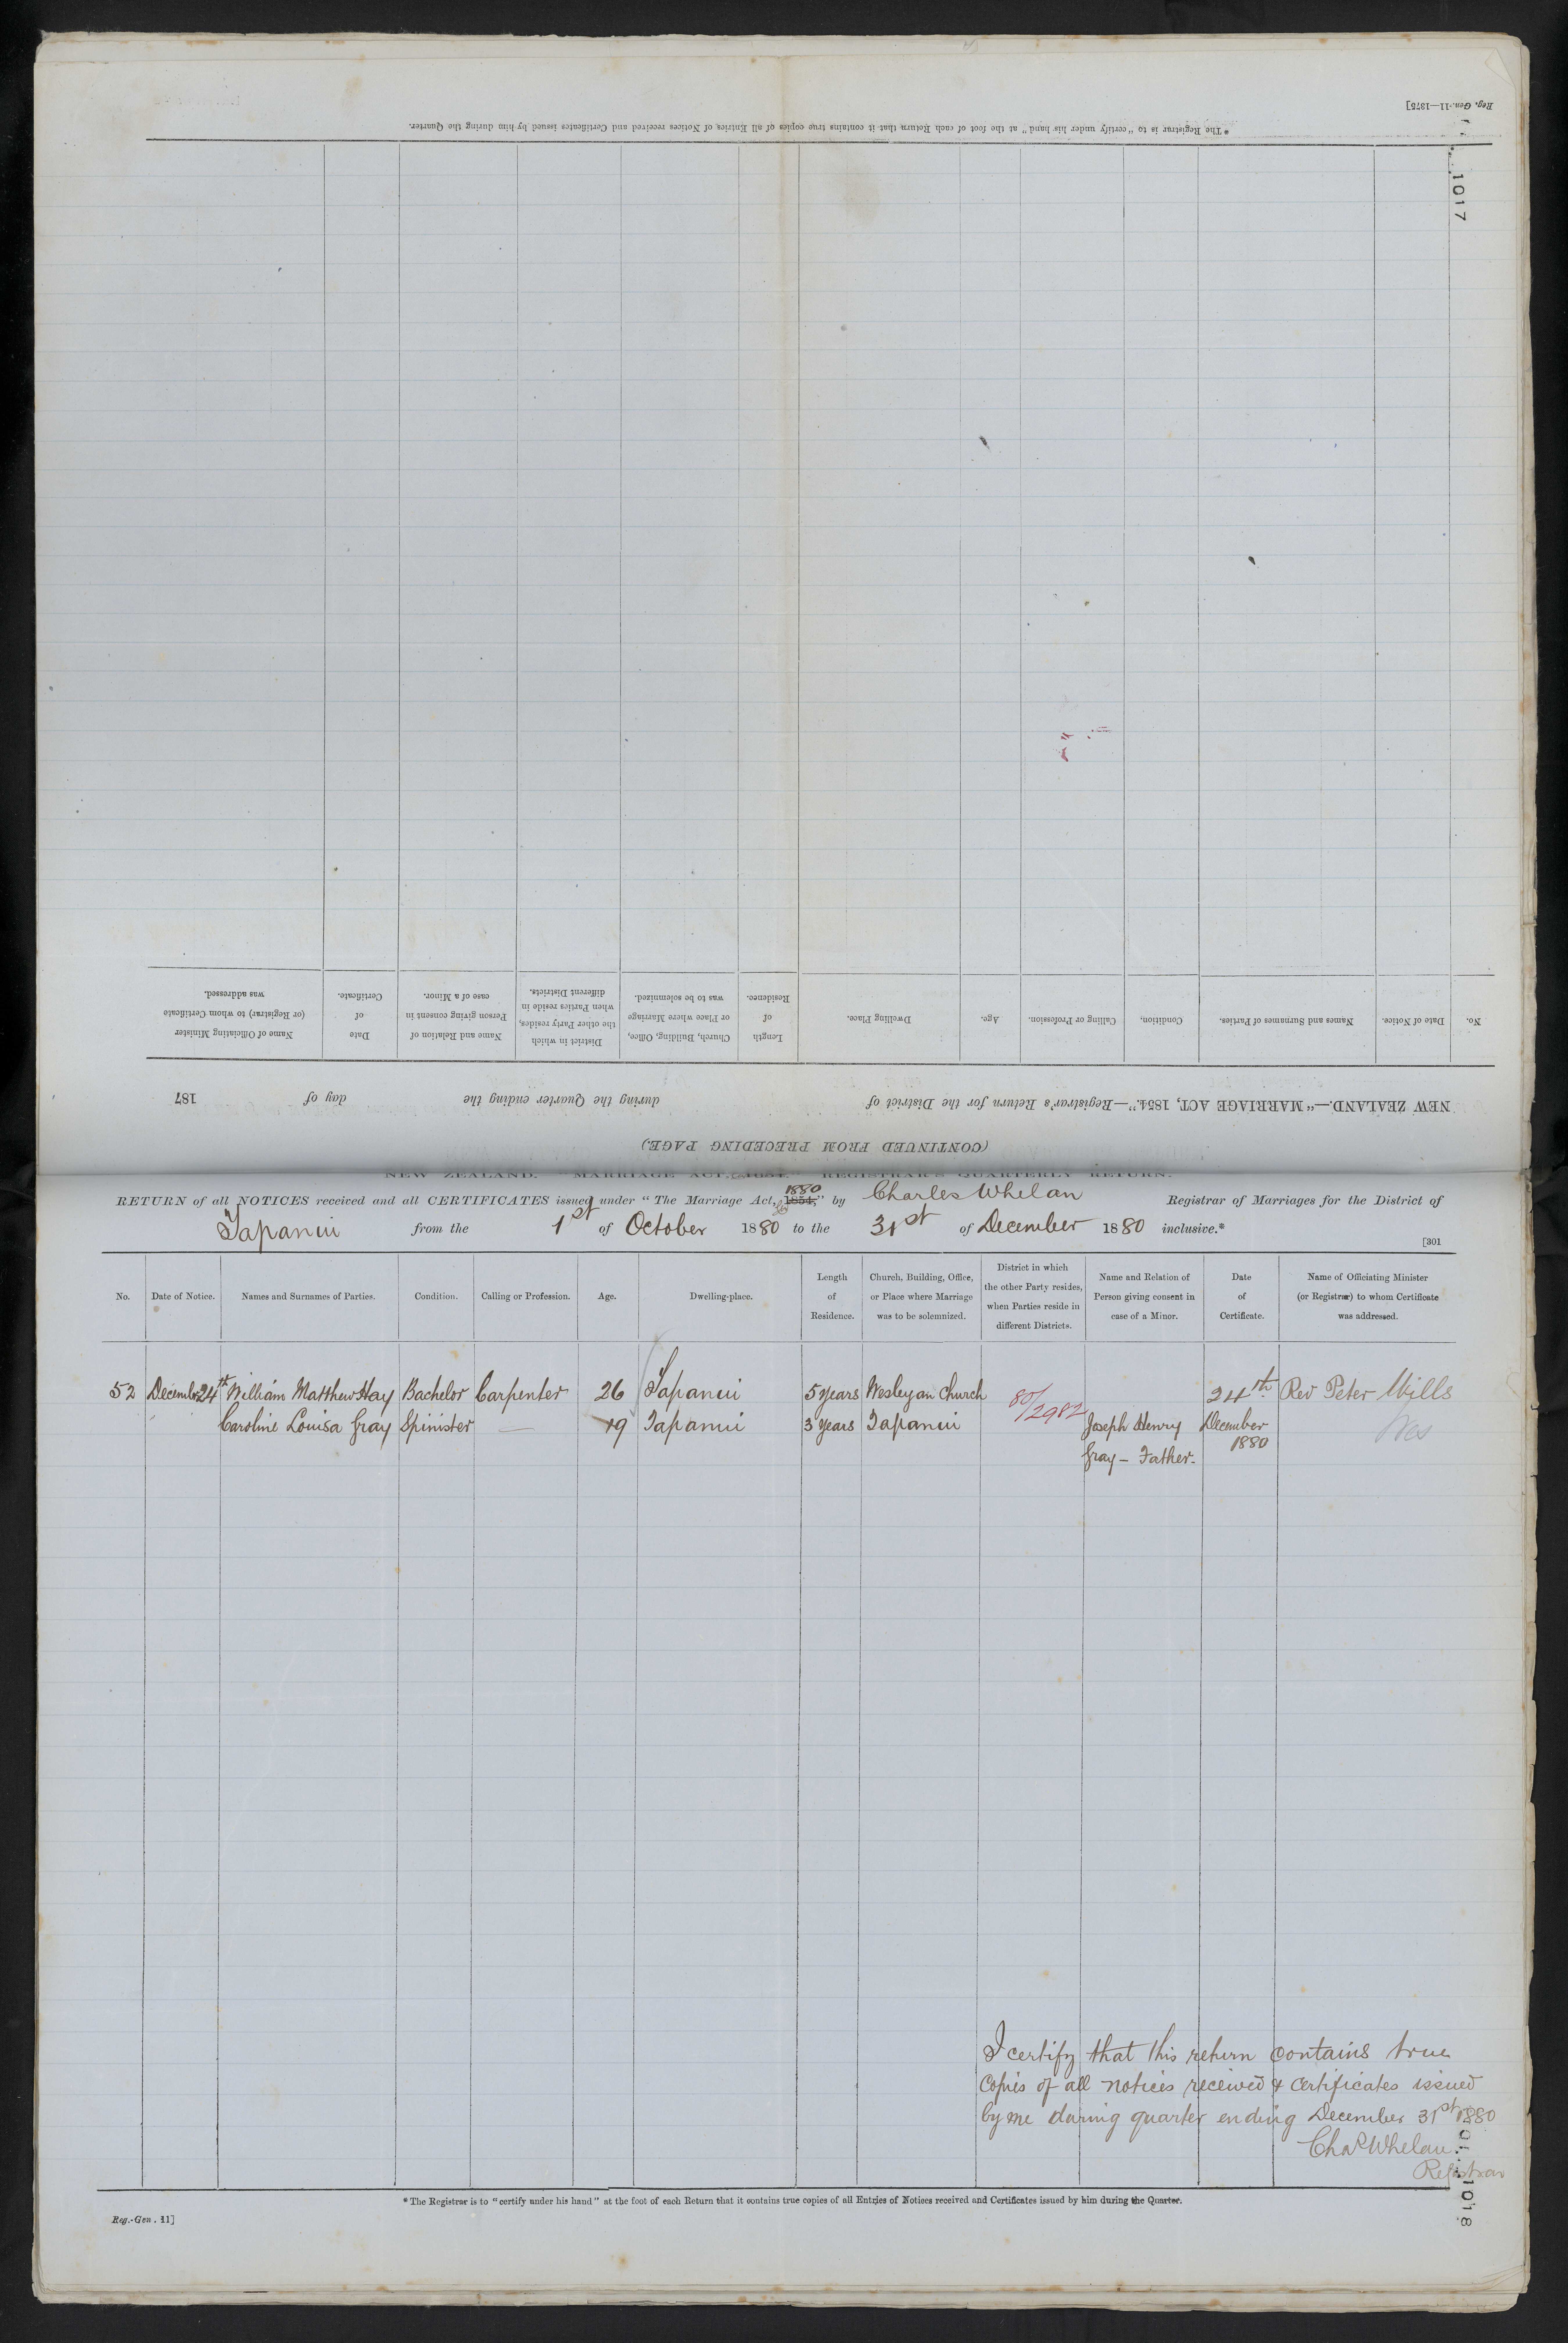 Reg. Gen.-11—1875]
* The Registrar is to "certify under his hand" at the foot of each Return that it contains true copies of all Entries of Notices received and Certificates issued by him during the Quarter.
1017
No.
Date of Notice.
Names and Surnames of Parties.
Condition.
Calling or Profession.
Age.
Dwelling Place.
Length
of
Residence.
Church, Building, Office,
or Place where Marriage
was to be solemnized.
District in which
the other Party resides,
when Parties reside in
different Districts.
Name and Relation of
Person giving consent in
case of a Minor.
Date
of
Certificate.
Name of Officiating Minister
(or Registrar) to whom Certificate
was addressed.
NEW ZEALAND.—"MARRIAGE ACT, 1854."—Registrar's Return for the District of during the Quarter ending the day of 187
(CONTINUED FROM PRECEDING PAGE.)
NEW ZEALAND. "MARRIAGE ACT, 1854." REGISTRAR'S QUARTERLY RETURN.
RETURN of all NOTICES received and all CERTIFICATES issued under "The Marriage Act, 1854," 1880 by Charles Whelan Registrar of Marriages for the District of
Tapanui from the 1st of October 1880 to the 31st of December 1880 inclusive.*
[301
No.
Date of Notice.
Names and Surnames of Parties.
Condition.
Calling or Profession.
Age.
Dwelling-place.
Length
of
Residence.
Church, Building, Office,
or Place where Marriage
was to be solemnized.
District in which
the other Party resides,
when Parties reside in
different Districts.
Name and Relation of
Person giving consent in
case of a Minor.
Date
of
Certificate.
Name of Officiating Minister
(or Registrar) to whom Certificate
was addressed.
52 December 24th William Matthew Hay Bachelor Carpenter 26 Tapanui 5 years Wesleyan Church 80/2982 24th Rev Peter Wills
Caroline Louisa Gray Spinister — 19 Tapanui 3 years Tapanui Joseph Henry December Wes
Gray – Father. 1880
I certify that this return contains true
Copies of all notices received & certificates issued
by me during quarter ending December 31st 1880
Chas Whelan
Registrar
* The Registrar is to "certify under his hand" at the foot of each Return that it contains true copies of all Entries of Notices received and Certificates issued by him during the Quarter.
Reg.-Gen. 11]
1018